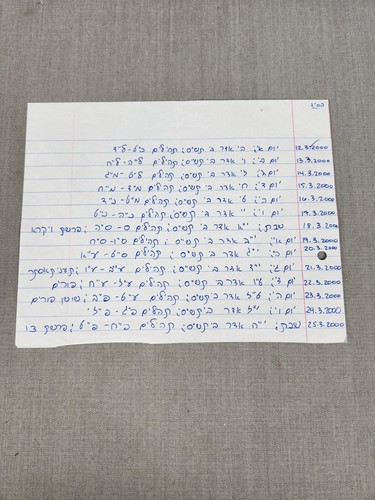 בס"ד
12.3.2000 יום א'; ה' אדר ב' תש"ס; תהילים כ"ט-ל"ד
13.3.2000 יום ב'; ו' אדר ב' תש"ס; תהילים ל"ה-ל"ח
14.3.2000 יום ג'; ז' אדר ב' תש"ס; תהילים ל"ט-מ"ג
15.3.2000 יום ד'; ח' אדר ב' תש"ס; תהילים מ"ד-מ"ח
16.3.2000 יום ה'; ט' אדר ב' תש"ס; תהילים מ"ט-נ"ד
17.3.2000 יום ו'; י' אדר ב' תש"ס; תהילים נ"ה-נ"ט
18.3.2000 שבת; י"א אדר ב' תש"ס; תהילים ס-ס"ה; פרשת ויקרא
19.3.2000 יום א'; י"ב אדר ב' תש"ס; תהילים ס"ו-ס"ח
20.3.2000 יום ב'; י"ג אדר ב' תש"ס; תהילים ס"ט-ע"א
21.3.2000 יום ג'; י"ד אדר ב' תש"ס; תהילים ע"ב-ע"ו; תענית אסתר
22.3.2000 יום ד'; ט"ו אדר ב' תש"ס; תהילים ע"ז-ע"ח; פורים
23.3.2000 יום ה'; ט"ז אדר ב' תש"ס; תהילים ע"ט-פ"ב; שושן פורים
24.3.2000 יום ו'; י"ז אדר ב' תש"ס; תהילים פ"ג-פ"ז
25.3.2000 שבת; י"ח אדר ב' תש"ס; תהילים פ"ח-פ"ט; פרשת צו